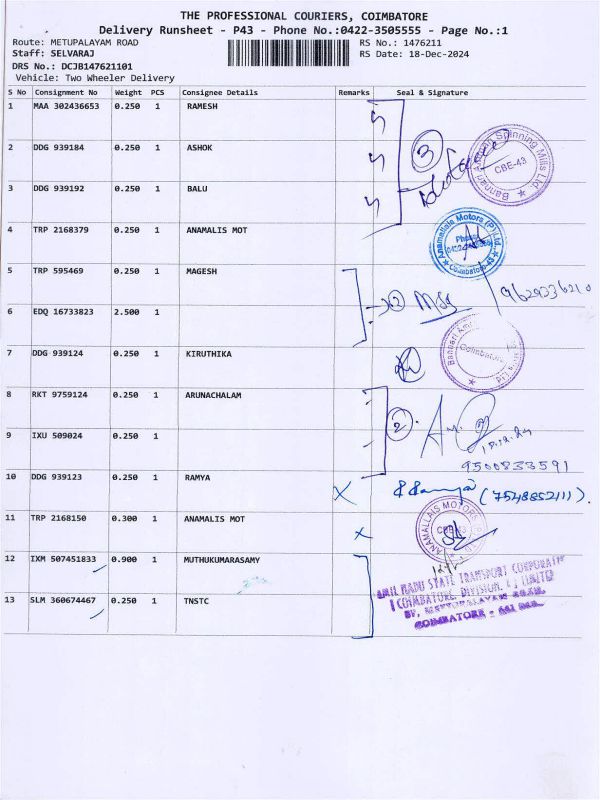 THE PROFESSIONAL COURIERS, COIMBATORE
Delivery Runsheet - P43 - Phone No.:0422-3505555 - Page No.:1
Route: METUPALAYAM ROAD
RS No.: 1476211
Staff: SELVARAJ
RS Date: 18-Dec-2024
DRS No.: DCJB147621101
Vehicle: Two Wheeler Delivery
S No Consignment No Weight PCS Consignee Details Remarks Seal & Signature
1 MAA 302436653 0.250 1 RAMESH
3
Bannari Amman Spinning Mills Ltd.
CBE-43
2 DDG 939184 0.250 1 ASHOK
3 DDG 939192 0.250 1 BALU
4 TRP 2168379 0.250 1 ANAMALIS MOT
Anamallais Motors (P) Ltd.
Phone
Coimbatore-43
5 TRP 595469 0.250 1 MAGESH
2
9629336210
6 EDQ 16733823 2.500 1
7 DDG 939124 0.250 1 KIRUTHIKA
Coimbatore
8 RKT 9759124 0.250 1 ARUNACHALAM
2
18.12.24
9 IXU 509024 0.250 1
9500833591
10 DDG 939123 0.250 1 RAMYA
X
(7548852111).
11 TRP 2168150 0.300 1 ANAMALIS MOT
X
ANAMALLAIS MOTORS
CBE-43
12 IXM 507451833 0.900 1 MUTHUKUMARASAMY
TAMIL NADU STATE TRANSPORT CORPORATION
(COIMBATORE, DIVISION, I) LIMITED
37, METTUPALAYAM ROAD,
COIMBATORE - 641 043.
13 SLM 360674467 0.250 1 TNSTC